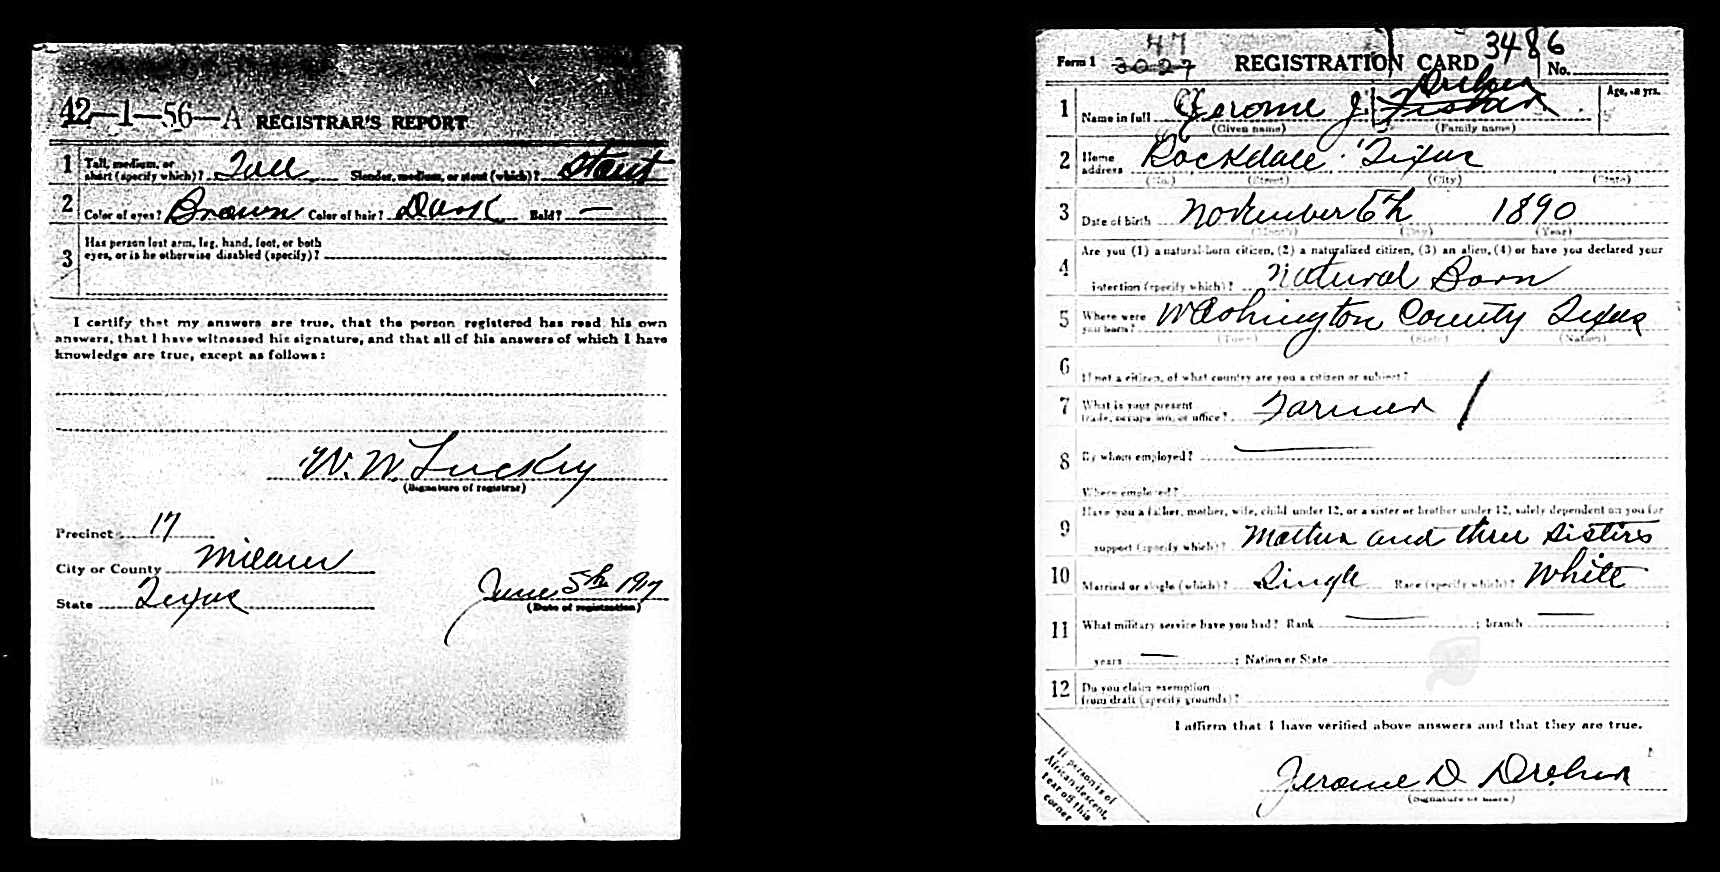 42-1-56-A REGISTRAR'S REPORT
1 Tall, medium, or short (specify which)? Tall Slender, medium, or stout (which)? Stout
2 Color of eyes? Brown Color of hair? Dark Bald? —
3 Has person lost arm, leg, hand, foot, or both
eyes, or is he otherwise disabled (specify)?
I certify that my answers are true, that the person registered has read his own
answers, that I have witnessed his signature, and that all of his answers of which I have
knowledge are true, except as follows:
W. W. Luckey
(Signature of registrar)
Precinct 17
City or County Milam
State Texas
June 5th 1917
(Date of registration)
Form 1 47 3027 REGISTRATION CARD 3486 No.
1 Name in full Jerome J.
Age, in yrs.
(Given name) (Family name)
2 Home address Rockdale Texas
(No.) (Street) (City) (State)
3 Date of birth November 6th 1890
(Month) (Day) (Year)
4 Are you (1) a natural-born citizen, (2) a naturalized citizen, (3) an alien, (4) or have you declared your
intention (specify which)? Natural Born
5 Where were you born? Washington County Texas
(Town) (State) (Nation)
6 If not a citizen, of what country are you a citizen or subject?
7 What is your present trade, occupation, or office? Farmer
8 By whom employed? —
Where employed?
9 Have you a father, mother, wife, child under 12, or a sister or brother under 12, solely dependent on you for
support (specify which)? Mother and three Sisters
10 Married or single (which)? Single Race (specify which)? White
11 What military service have you had? Rank — ; branch — ;
years — ; Nation or State
12 Do you claim exemption
from draft (specify grounds)?
I affirm that I have verified above answers and that they are true.
Jerome D
(Signature or mark)
If person is of
African descent,
tear off this
corner